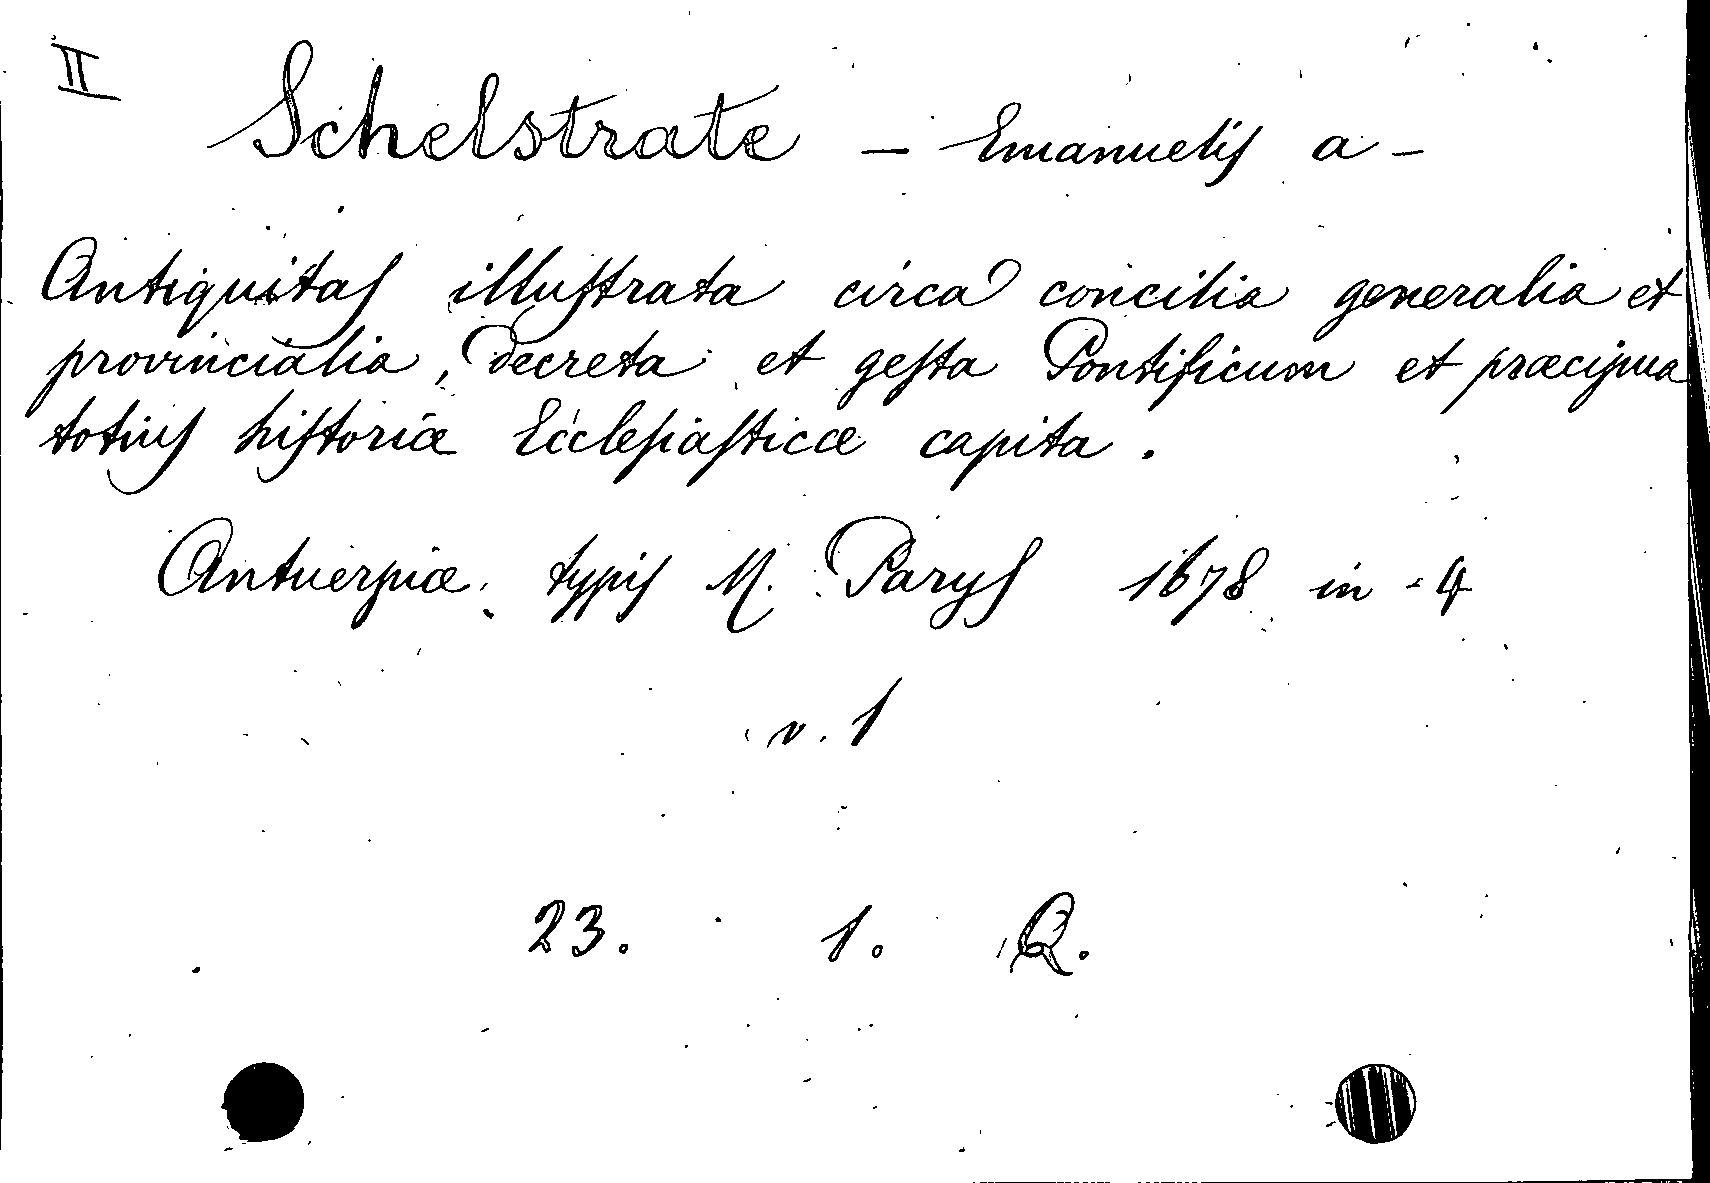 II
Schelstrate – Emanuelis a –
Antiquitas illustrata circa concilia generalia et
provincialia, Decreta et gesta Pontificum et præcipua
totius historiæ Ecclesiasticæ capita.
Antuerpiæ, typis M. Parys 1678 in-4
v. 1
23. 1. Q.